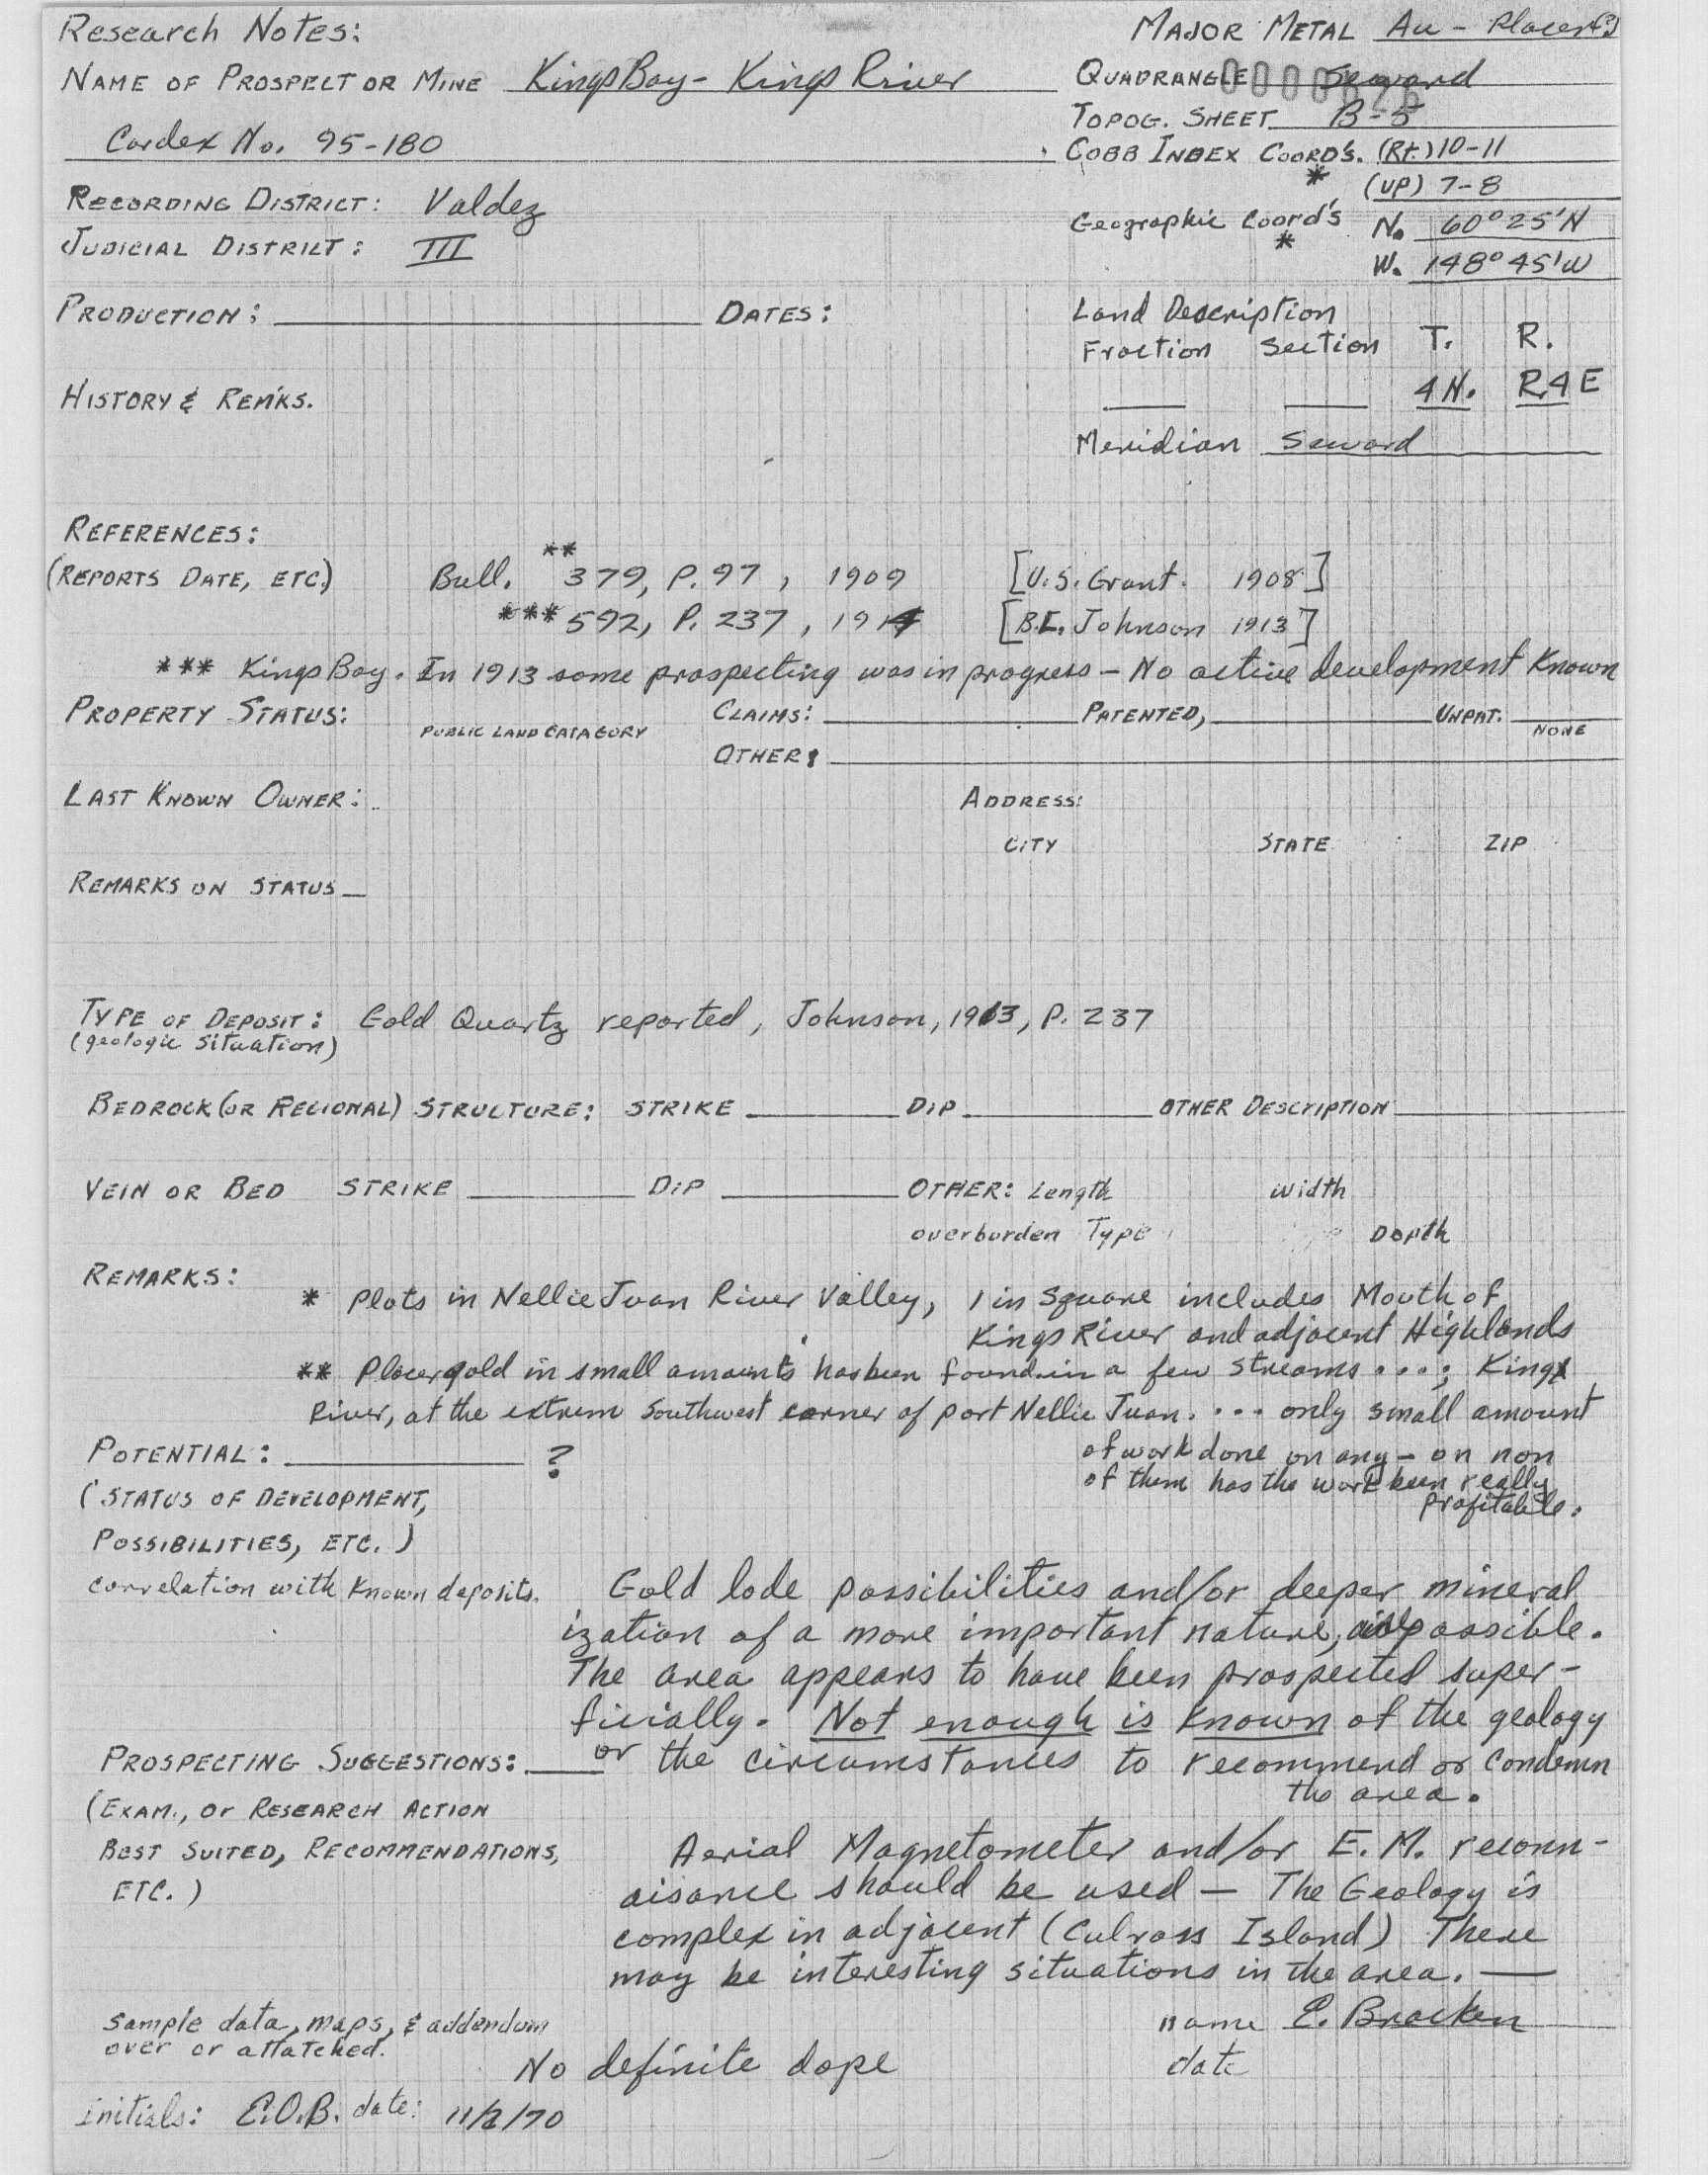 Research Notes:
MAJOR METAL Au - Placer(?)
NAME OF PROSPECT OR MINE Kings Bay - Kings River
QUADRANGLE Seward
Cardex No. 95-180
TOPOG. SHEET B-5
COBB INDEX COORD'S. (Rt.) 10-11
* (UP) 7-8
RECORDING DISTRICT: Valdez
Geographic Coord's N. 60° 25' N
JUDICIAL DISTRICT: III
* W. 148° 45' W
PRODUCTION: DATES:
Land Description
Fraction Section T. R.
HISTORY & REMKS.
4N. R4E
Meridian Seward
REFERENCES:
(REPORTS DATE, ETC.) Bull. ** 379, P. 97, 1909 [U.S. Grant. 1908]
*** 592, P. 237, 1914 [B.L. Johnson 1913]
*** Kings Bay. In 1913 some prospecting was in progress - No active development Known
PROPERTY STATUS: CLAIMS: PATENTED, UNPAT.
PUBLIC LAND CATAGORY NONE
OTHER:
LAST KNOWN OWNER: ADDRESS:
CITY STATE ZIP
REMARKS ON STATUS
TYPE OF DEPOSIT: Gold Quartz reported, Johnson, 1913, P. 237
(geologic situation)
BEDROCK (OR REGIONAL) STRUCTURE: STRIKE DIP OTHER DESCRIPTION
VEIN OR BED STRIKE DIP OTHER: Length width
overburden Type Depth
REMARKS:
* Plots in Nellie Juan River Valley, 1 in square includes Mouth of
Kings River and adjacent Highlands
** Placer gold in small amounts has been found in a few streams ...; Kings
River, at the extrem Southwest corner of port Nellie Juan. ... only small amount
of work done on any - on non
of them has the work been really
profitable.
POTENTIAL: ?
(STATUS OF DEVELOPMENT,
POSSIBILITIES, ETC.)
correlation with known deposits.
Gold lode possibilities and/or deeper mineral
ization of a more important nature, possible.
The area appears to have been prospected super-
ficially. Not enough is known of the geology
PROSPECTING SUGGESTIONS: or the circumstances to recommend or condemn
the area.
(EXAM., Or RESEARCH ACTION
BEST SUITED, RECOMMENDATIONS,
ETC.)
Aerial Magnetometer and/or E.M. reconn-
aisance should be used — The Geology is
complex in adjacent (Culross Island) There
may be interesting situations in the area. —
Sample data, maps, & addendum
over or attatched.
name E. Bracken
No definite dope
date
initials: E.O.B. date: 11/2/70